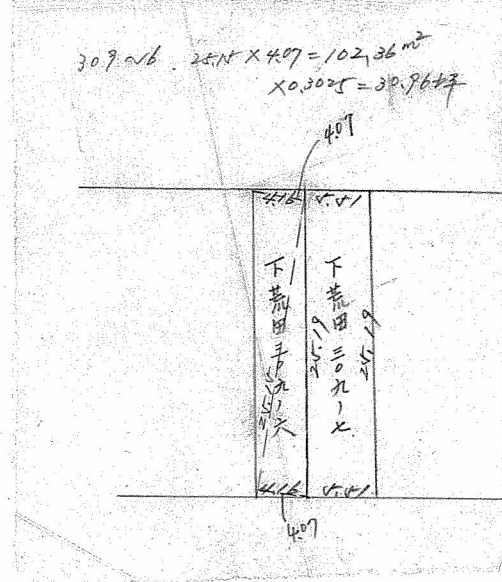 309の16 25.15×4.07=102,36m²
×0.3025=30.96坪
4.07
4.16 5.51
下荒田三〇九ノ六
25.15
下荒田三〇九ノ七
25.19
25.19
4.16 5.51
4.07